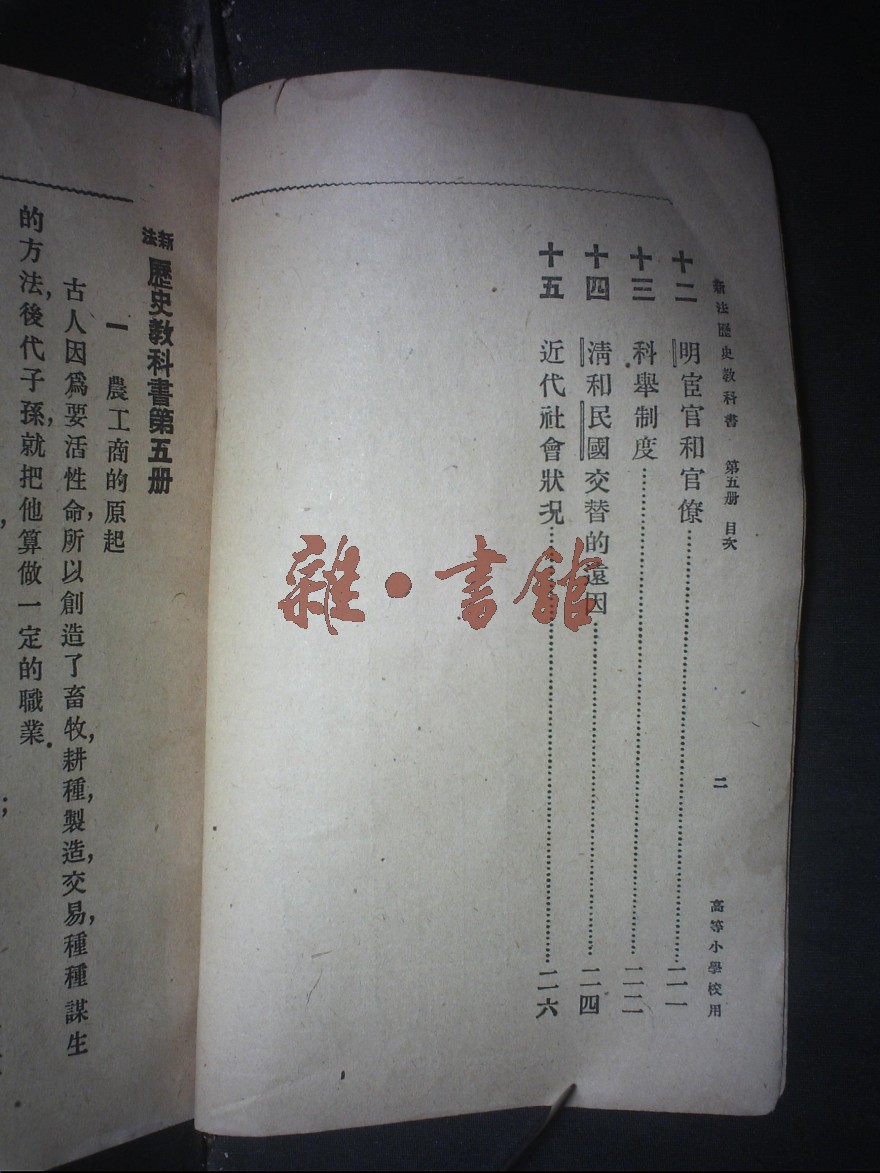 新法歷史教科書 第五册 目次 二 高等小學校用
十二 明宦官和官僚 二一
十三 科舉制度 二二
十四 清和民國交替的遠因 二四
十五 近代社會狀况 二六
新法 歷史教科書第五册
一 農工商的原起
古人因爲要活性命,所以創造了畜牧,耕種,製造,交易,種種謀生
的方法,後代子孫,就把他算做一定的職業.
雜·書館